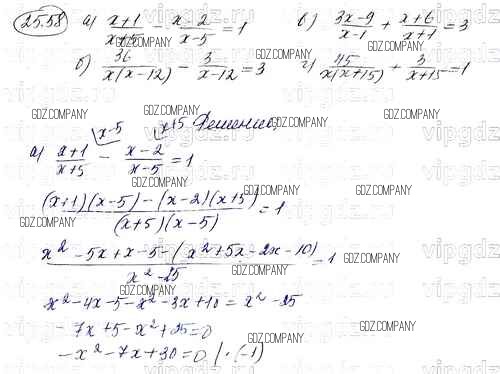 25.58 а) (x+1)/(x+5) - (x-2)/(x-5) = 1 в) (3x-9)/(x-1) + (x+6)/(x+1) = 3
б) 36/(x(x-12)) - 3/(x-12) = 3 г) 45/(x(x+15)) + 3/(x+15) = 1
Решение,
а) (x+1)/(x+5) \x-5 - (x-2)/(x-5) \x+5 = 1
((x+1)(x-5) - (x-2)(x+5))/((x+5)(x-5)) = 1
(x² - 5x + x - 5 - (x² + 5x - 2x - 10))/(x² - 25) = 1
x² - 4x - 5 - x² - 3x + 10 = x² - 25
- 7x + 5 - x² + 25 = 0
- x² - 7x + 30 = 0 / · (-1)
GDZ.COMPANY
vipgdz.ru